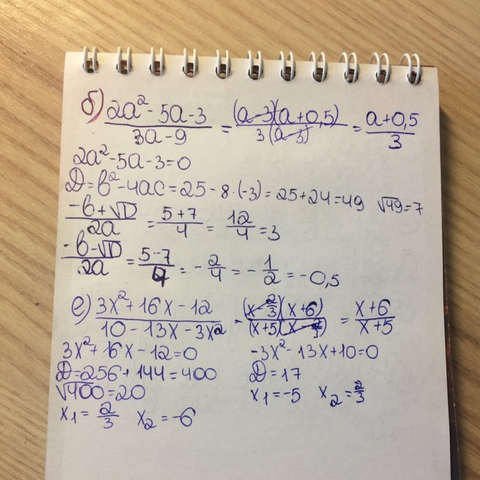 б) (2a² - 5a - 3)/(3a - 9) = ((a-3)(a+0,5))/(3(a-3)) = (a+0,5)/3
2a² - 5a - 3 = 0
D = b² - 4ac = 25 - 8·(-3) = 25 + 24 = 49 √49 = 7
(-b + √D)/2a = (5+7)/4 = 12/4 = 3
(-b - √D)/2a = (5-7)/4 = -2/4 = -1/2 = -0,5
e) (3x² + 16x - 12)/(10 - 13x - 3x²) - ((x - 2/3)(x+6))/((x+5)(x - 2/3)) = (x+6)/(x+5)
3x² + 16x - 12 = 0 -3x² - 13x + 10 = 0
D = 256 + 144 = 400 D = 17
√400 = 20 x₁ = -5 x₂ = 2/3
x₁ = 2/3 x₂ = -6